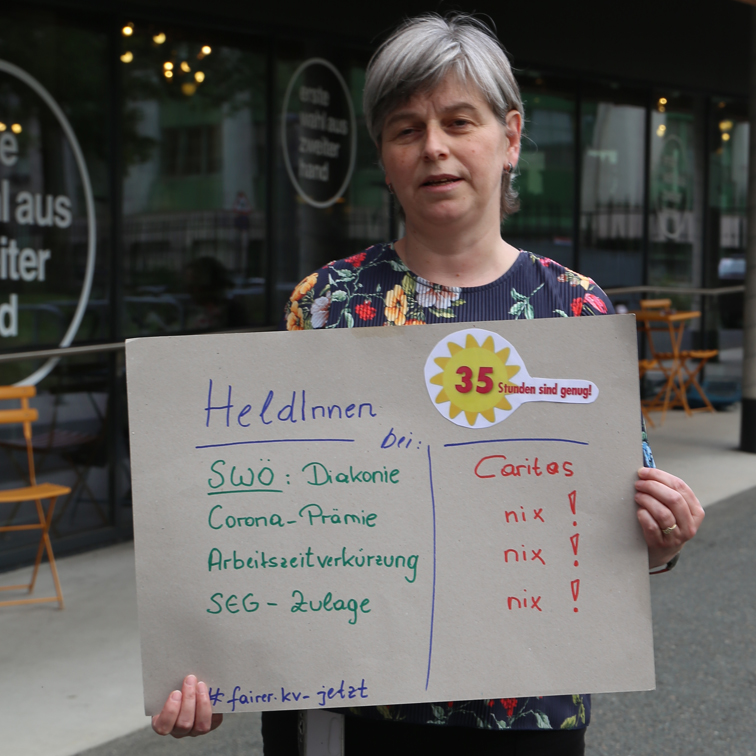 e
l aus
iter
d
erste
wahl aus
zweiter
hand
35 Stunden sind genug!
HeldInnen
bei:
SWÖ: Diakonie Caritas
Corona-Prämie nix!
Arbeitszeitverkürzung nix!
SEG-Zulage nix!
#fairer.kv-jetzt